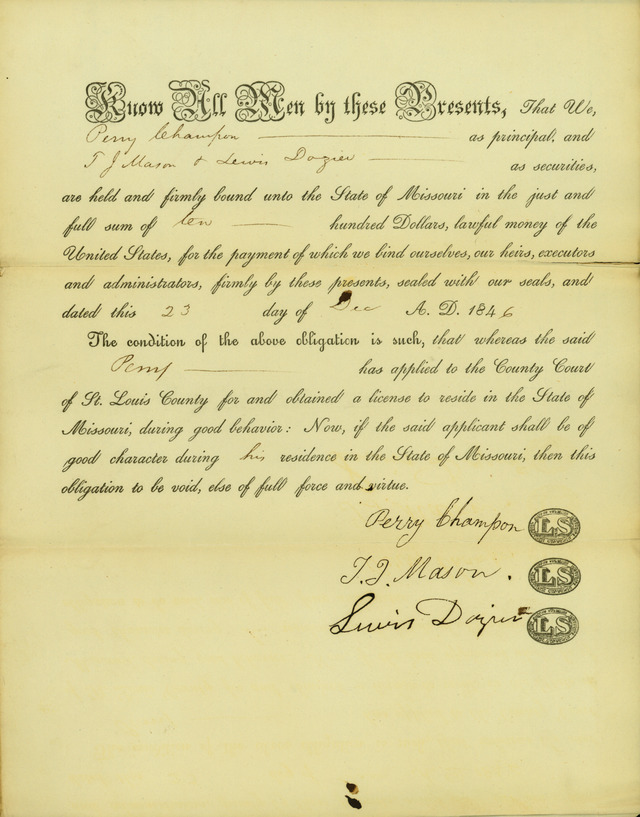 Know All Men by these Presents, That We,
Perry Champon as principal, and
T J Mason & Lewis Dozier as securities,
are held and firmly bound unto the State of Missouri in the just and
full sum of ten hundred Dollars, lawful money of the
United States, for the payment of which we bind ourselves, our heirs, executors
and administrators, firmly by these presents, sealed with our seals, and
dated this 23 day of Dec A. D. 1846
The condition of the above obligation is such, that whereas the said
Perry has applied to the County Court
of St. Louis County for and obtained a license to reside in the State of
Missouri, during good behavior: Now, if the said applicant shall be of
good character during his residence in the State of Missouri, then this
obligation to be void, else of full force and virtue.
Perry Champon LS
T. J. Mason. LS
Lewis Dozier LS